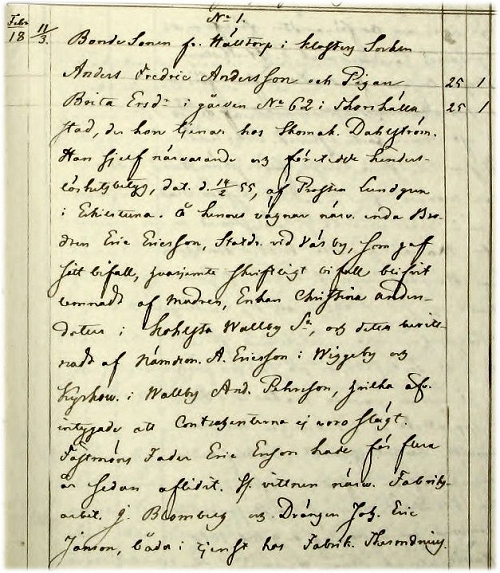 No 1.
Febr. 11
18 3. Bonde Sonen fr. Hälltorp i Klosters Socken
Anders Fredric Andersson och Pigan 25 1
Brita Ersdr i gården No 62 i Thorshälla 25 1
stad, der hon tjenar hos Skomak. Dahlström.
Han sjelf närvarande og företedde hinders-
löshetsbetyg, dat. d. 14/2 55, af Prosten Lundgren
i Eskilstuna. Å hennes vägnar närv. enda Bro-
dren Eric Ericsson, Statdr. vid Väsby, som gaf
sitt bifall, hvarjemte skriftligt bifall blifvit
lemnadt af modren, Enkan Christina Anders-
dotter i Wallby Sn, og detta bevitt-
nadt af Nämdem. A. Ericsson i Wiggeby og
Kyrkow. i Wallby And. Pehrsson, hvilka äfv.
intygade att Contrahenterna ej voro slägt.
Fästmöns Fader Eric Ersson hade för flera
år sedan aflidit. Sp. vittnen närv. Fabriks-
arbet. J. Blomberg og Drängen Joh. Eric
Janson, båda i tjenst hos Fabrik.